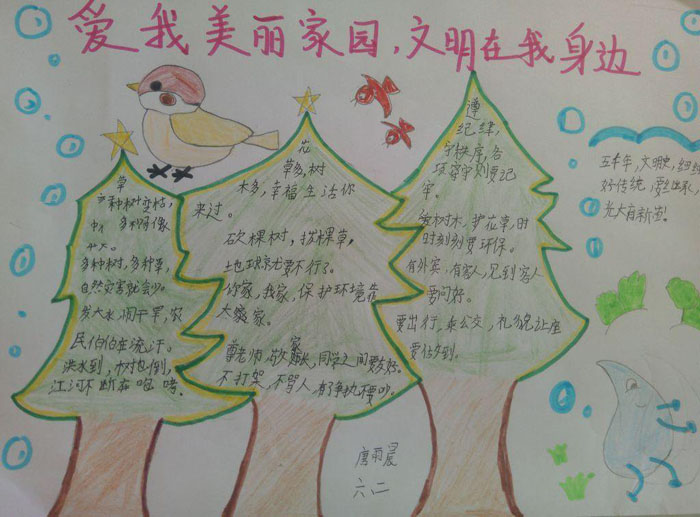 爱我美丽家园，文明在我身边
草
多种树，多种草，
自然灾害就会少。
发大水，闹干旱，农
民伯伯在流汗。
洪水到，树也倒，
江河不断在咆哮。
花
草多，树
木多，幸福生活你
来过。
砍棵树，拔棵草，
地球就要不行了。
你家，我家，保护环境靠
大家。
尊老师，敬家长，同学之间要友好。
不打架，不骂人，有了争执不要吵。
遵
纪律，
守秩序，各
项守则要记
牢。
爱树木，护花草，时
时刻刻要环保。
有外宾，有客人，见到客人
要问好。
要出行，乘公交，礼貌让座
要做到。
五千年，文明史，
好传统，要继承，
光大有新出！
唐丽晨
六二